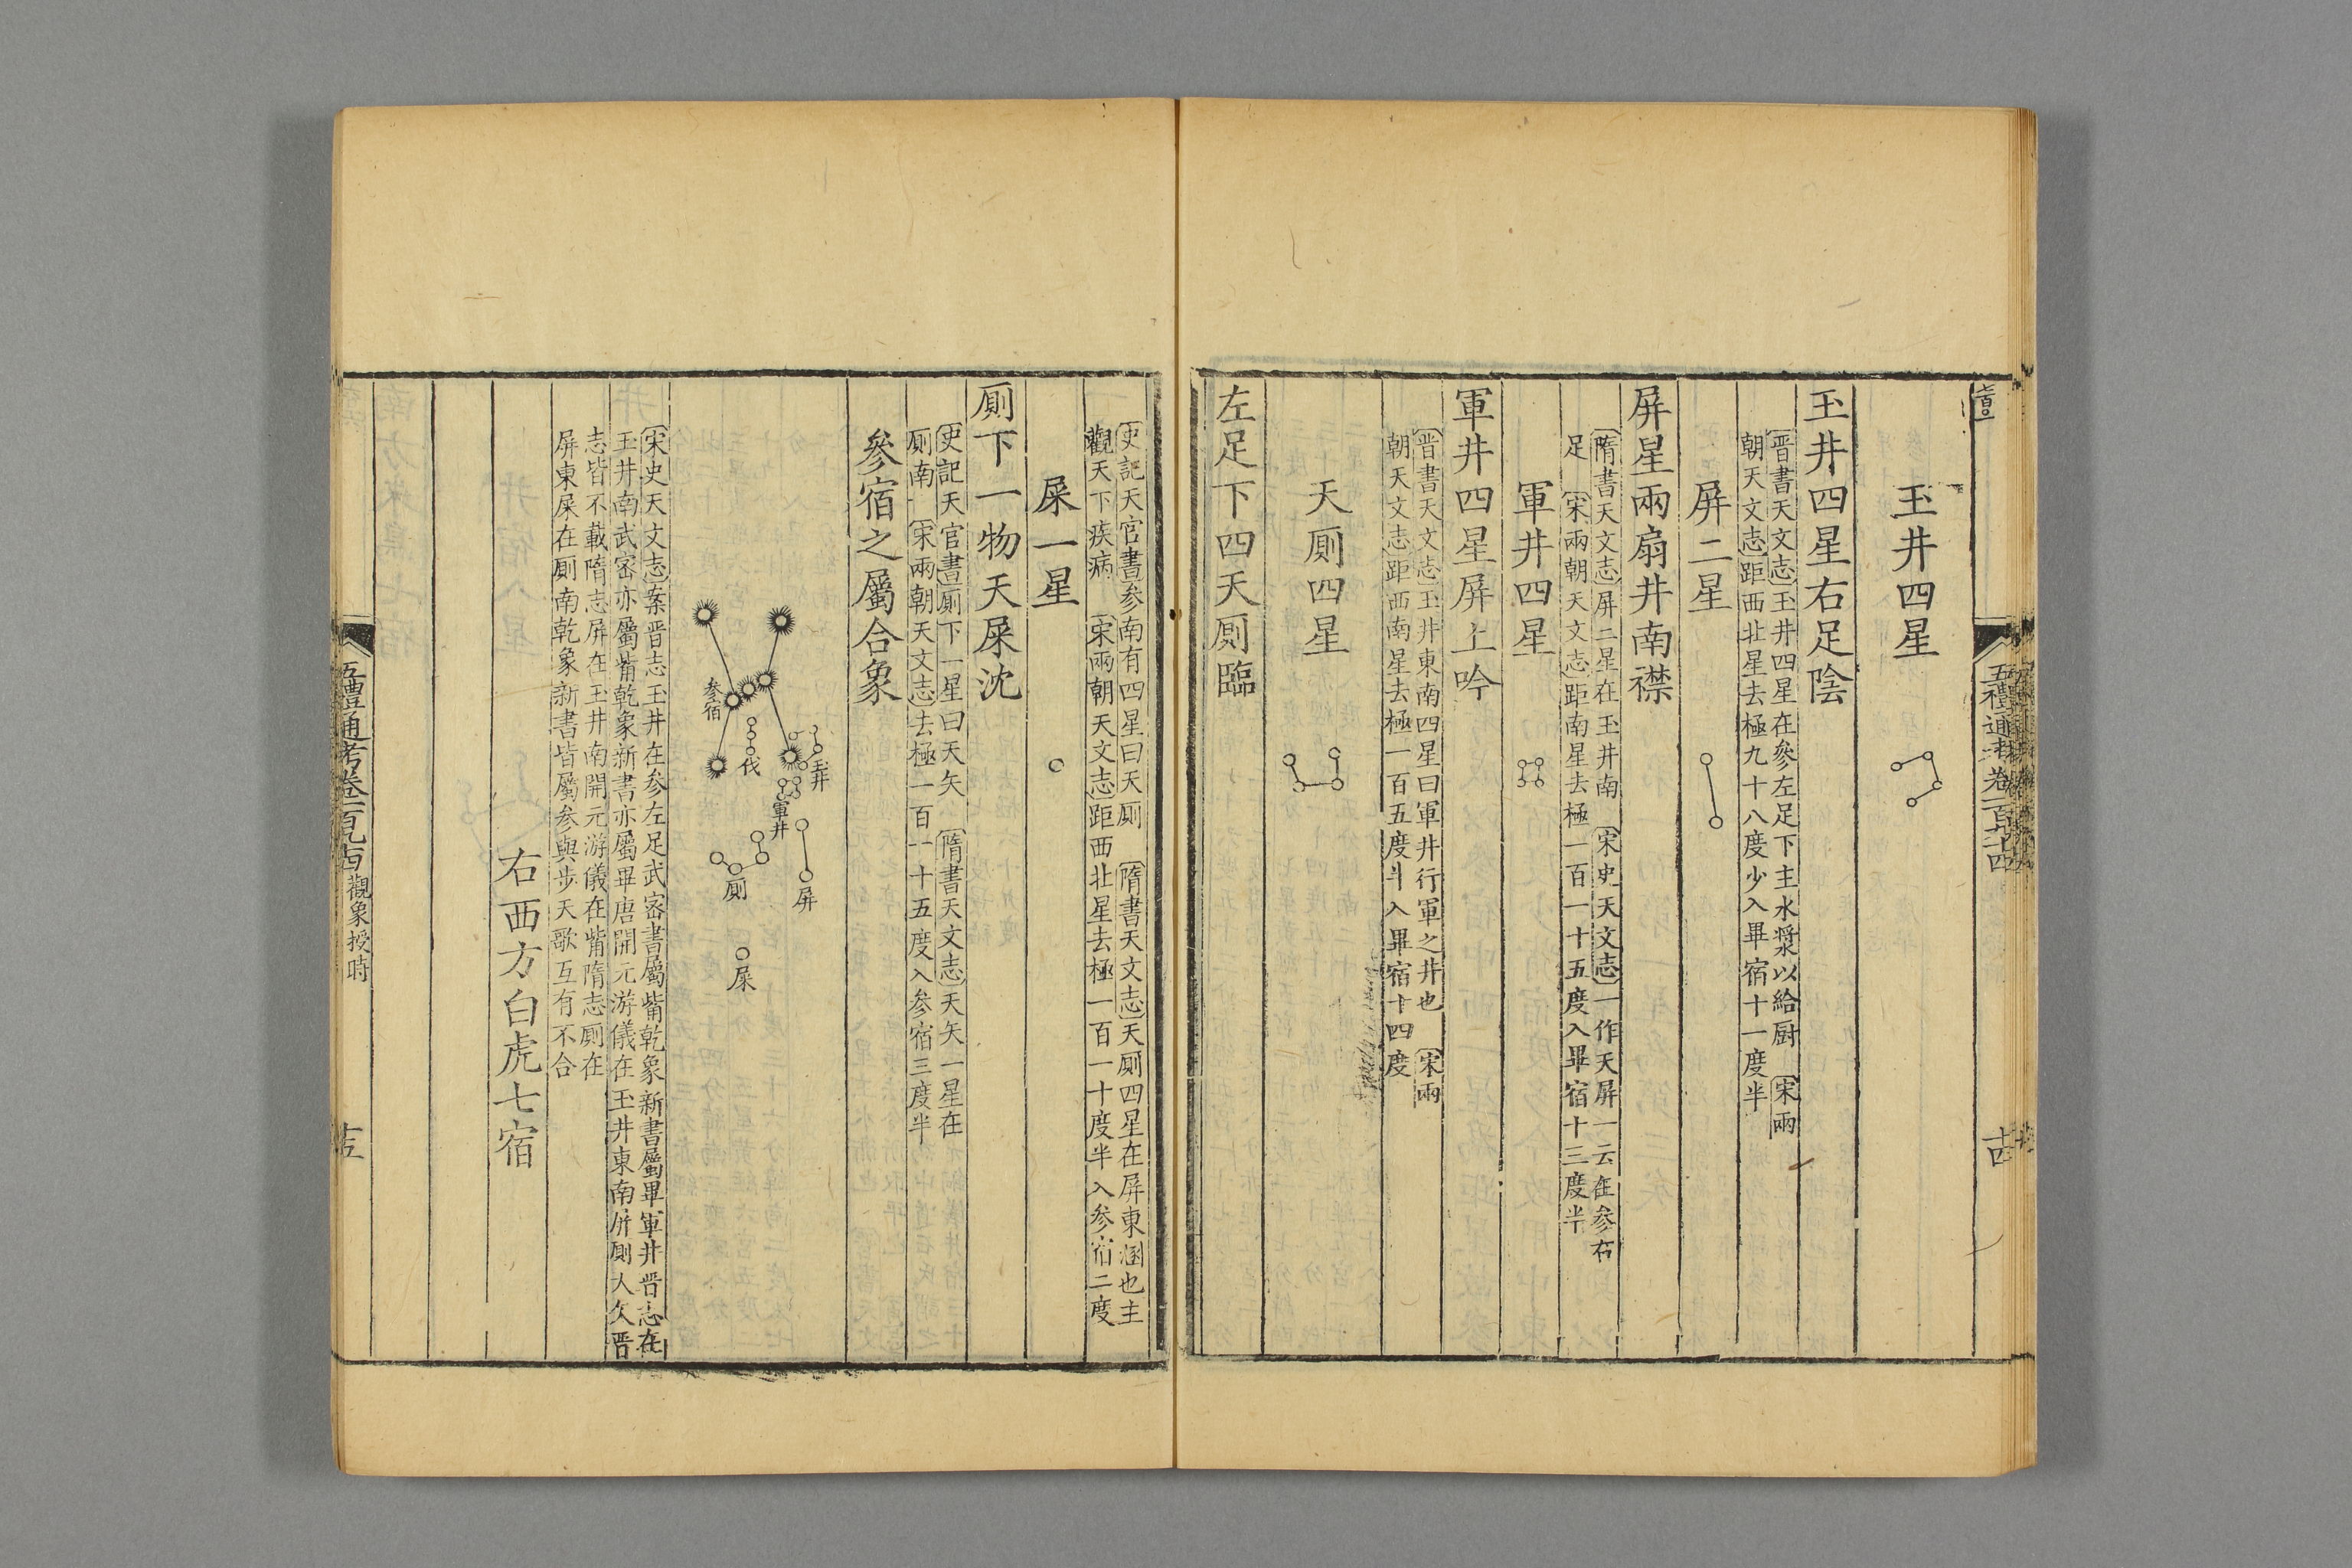 五禮通考卷一百九十四
十四
玉井四星
玉井四星右足陰
晋書天文志玉井四星在參左足下主水漿以給厨　宋兩
朝天文志距西北星去極九十八度少入畢宿十一度半
屏二星
屏星兩扇井南襟
隋書天文志屏二星在玉井南　宋史天文志一作天屏一云在參右
足　宋兩朝天文志距南星去極一百一十五度入畢宿十三度半
軍井四星
軍井四星屏上吟
晋書天文志玉井東南四星曰軍井行軍之井也　宋兩
朝天文志距西南星去極一百五度斗入畢宿十四度
天厠四星
左足下四天厠臨
史記天官書参南有四星曰天厠　隋書天文志天厠四星在屏東溷也主
觀天下疾病　宋兩朝天文志距西北星去極一百一十度半入参宿二度
屎一星
厠下一物天屎沈
史記天官書厠下一星曰天矢　隋書天文志天矢一星在
厠南　宋兩朝天文志去極一百一十五度入参宿三度半
參宿之屬合象
玉井
屏
軍井
伐
厠
屎
参宿
宋史天文志案晋志玉井在参左足武密書屬觜乾象新書屬畢軍井晋志在
玉井南武密亦屬觜乾象新書亦屬畢唐開元游儀在玉井東南屏厠人矢晋
志皆不載隋志屏在玉井南開元游儀在觜隋志厠在
屏東屎在厠南乾象新書皆屬参與步天歌互有不合
右西方白虎七宿
五禮通考卷一百九十四 觀象授時
十五